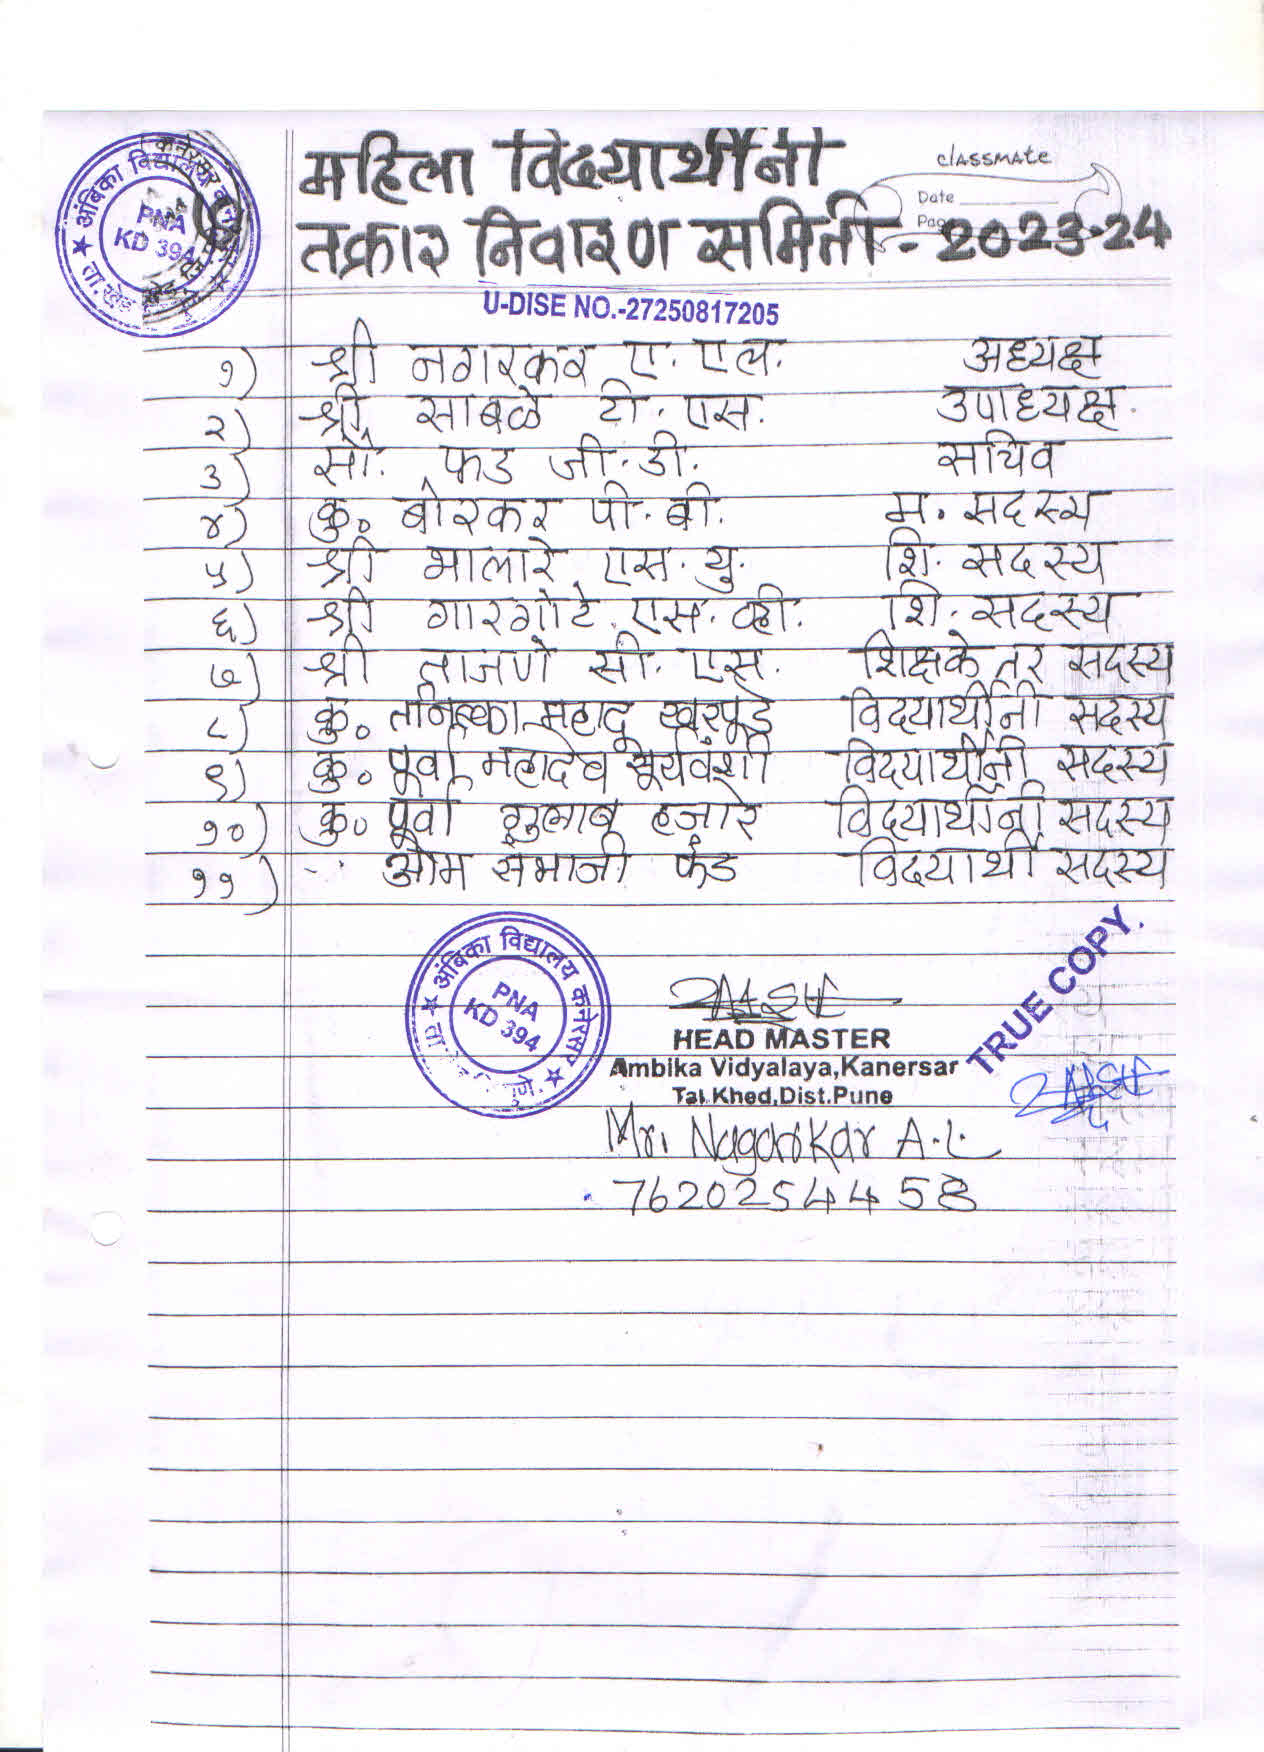 महिला विदयार्थीनी
तक्रार निवारण समिती - 2023-24
classmate
Date
Page
अंबिका विद्यालय कनेरसर
PNA
KD 394
U-DISE NO.-27250817205
१) श्री नगरकर ए. एल. अध्यक्ष
२) श्री साबळे टी. एस. उपाध्यक्ष.
३) सौ. फड जी. डी. सचिव
४) कु. बोरकर पी. बी. म. सदस्य
५) श्री भालारे एस. यु. शि. सदस्य
६) श्री गारगोटे एस. व्ही. शि. सदस्य
७) श्री ताजणे सी. एस. शिक्षकेतर सदस्य
८) कु. महादू खरपूडे विदयार्थीनी सदस्य
९) कु. पूर्वा महादेव सूर्यवंशी विदयार्थीनी सदस्य
१०) कु. पूर्वा गुलाब हजारे विदयार्थीनी सदस्य
११) ओम फड विदयार्थी सदस्य
अंबिका विद्यालय कनेरसर
PNA
KD 394
HEAD MASTER
Ambika Vidyalaya,Kanersar
Tal.Khed,Dist.Pune
TRUE COPY.
Mr. Nagarkar A.L.
7620254458